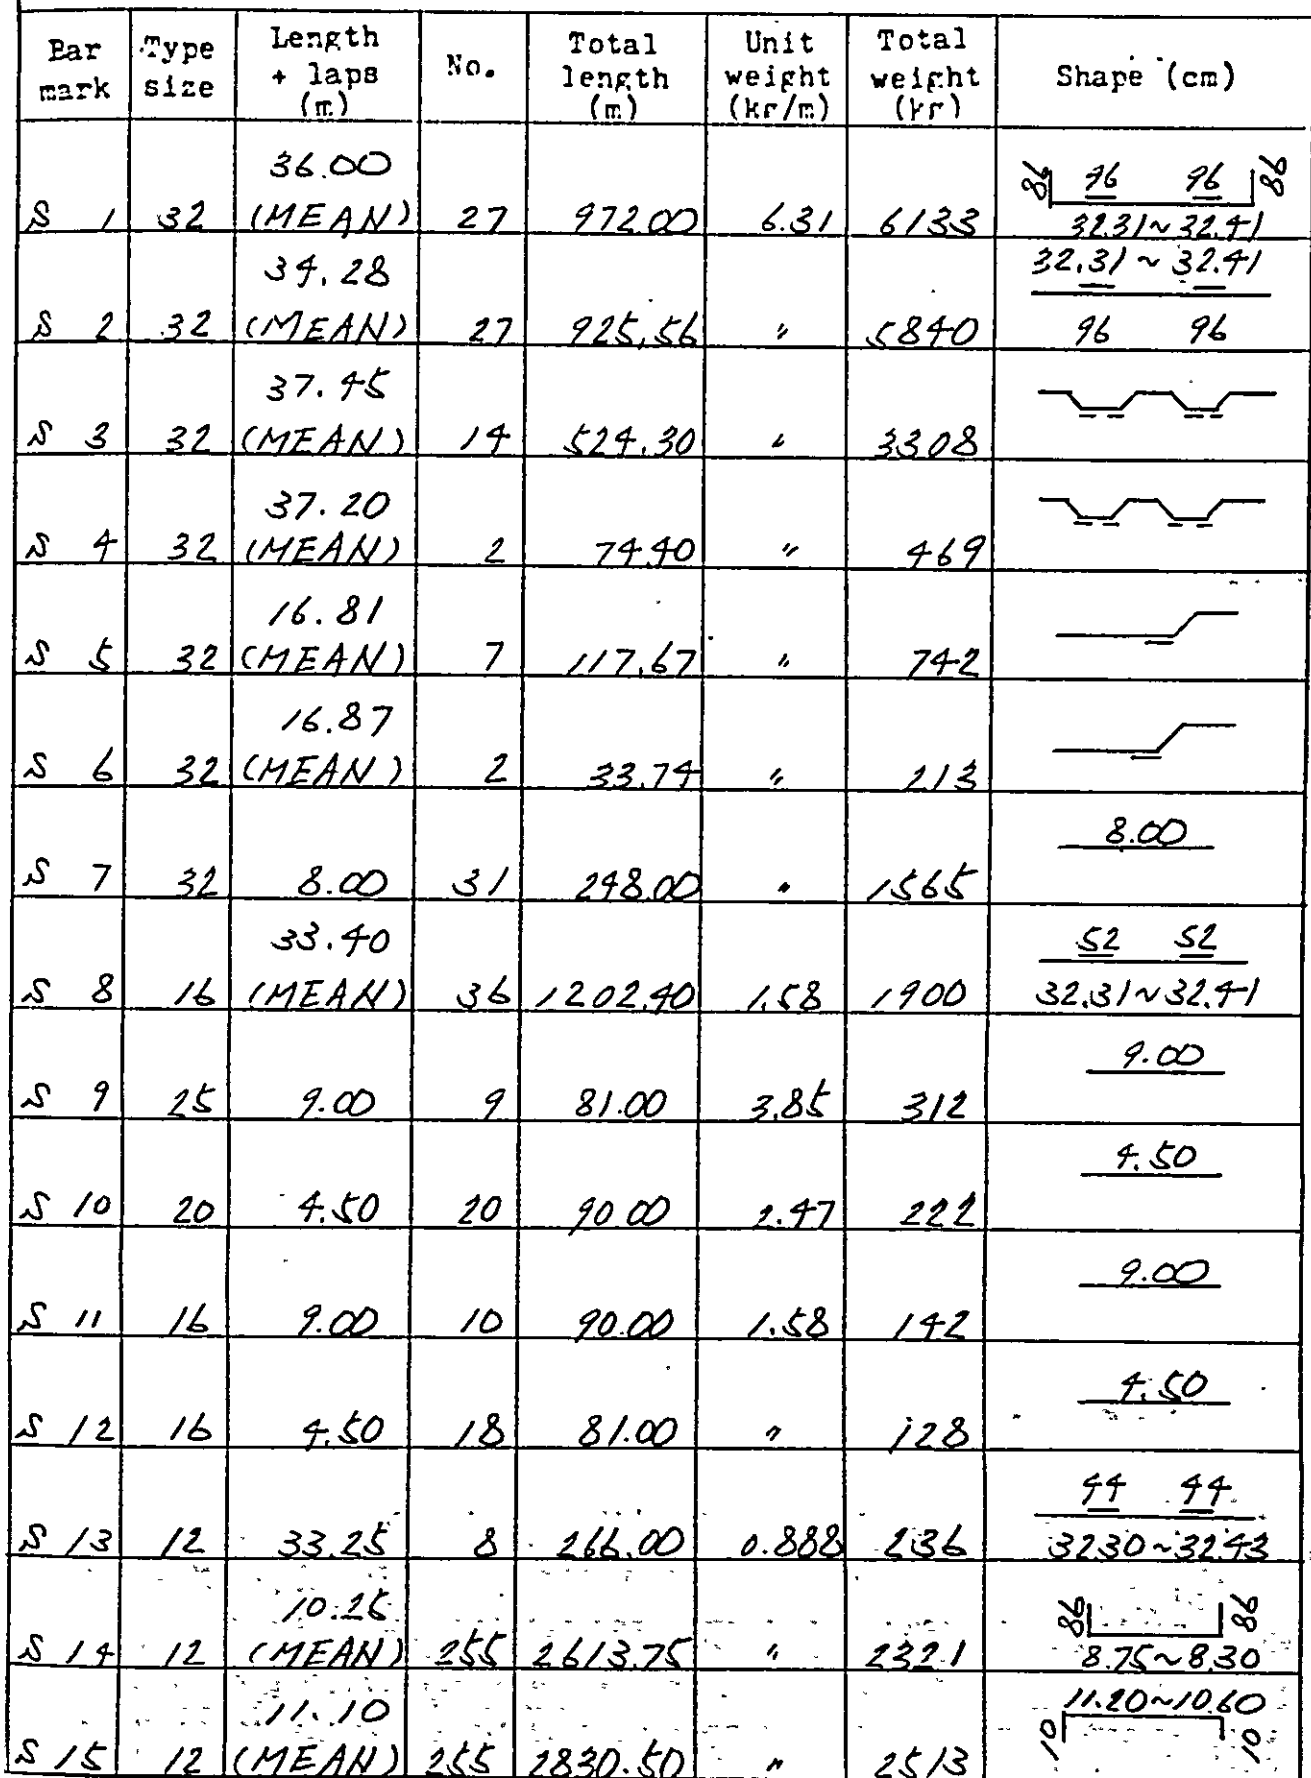 Bar mark Type size Length + laps (m) No. Total length (m) Unit weight (kg/m) Total weight (kg) Shape (cm)
S 1 32 36.00 (MEAN) 27 972.00 6.31 6133 86 96 96 86 32.31~32.41
S 2 32 34.28 (MEAN) 27 925.56 〃 5840 32.31~32.41 96 96
S 3 32 37.45 (MEAN) 14 524.30 〃 3308
S 4 32 37.20 (MEAN) 2 74.40 〃 469
S 5 32 16.81 (MEAN) 7 117.67 〃 742
S 6 32 16.87 (MEAN) 2 33.74 〃 213
S 7 32 8.00 31 248.00 〃 1565 8.00
S 8 16 33.40 (MEAN) 36 1202.40 1.58 1900 52 52 32.31~32.41
S 9 25 9.00 9 81.00 3.85 312 9.00
S 10 20 4.50 20 90.00 2.47 222 4.50
S 11 16 9.00 10 90.00 1.58 142 9.00
S 12 16 4.50 18 81.00 〃 128 4.50
S 13 12 33.25 8 266.00 0.888 236 44 44 32.30~32.43
S 14 12 10.25 (MEAN) 255 2613.75 〃 2321 86 86 8.75~8.30
S 15 12 11.10 (MEAN) 255 2830.50 〃 2513 11.20~10.60 10 10